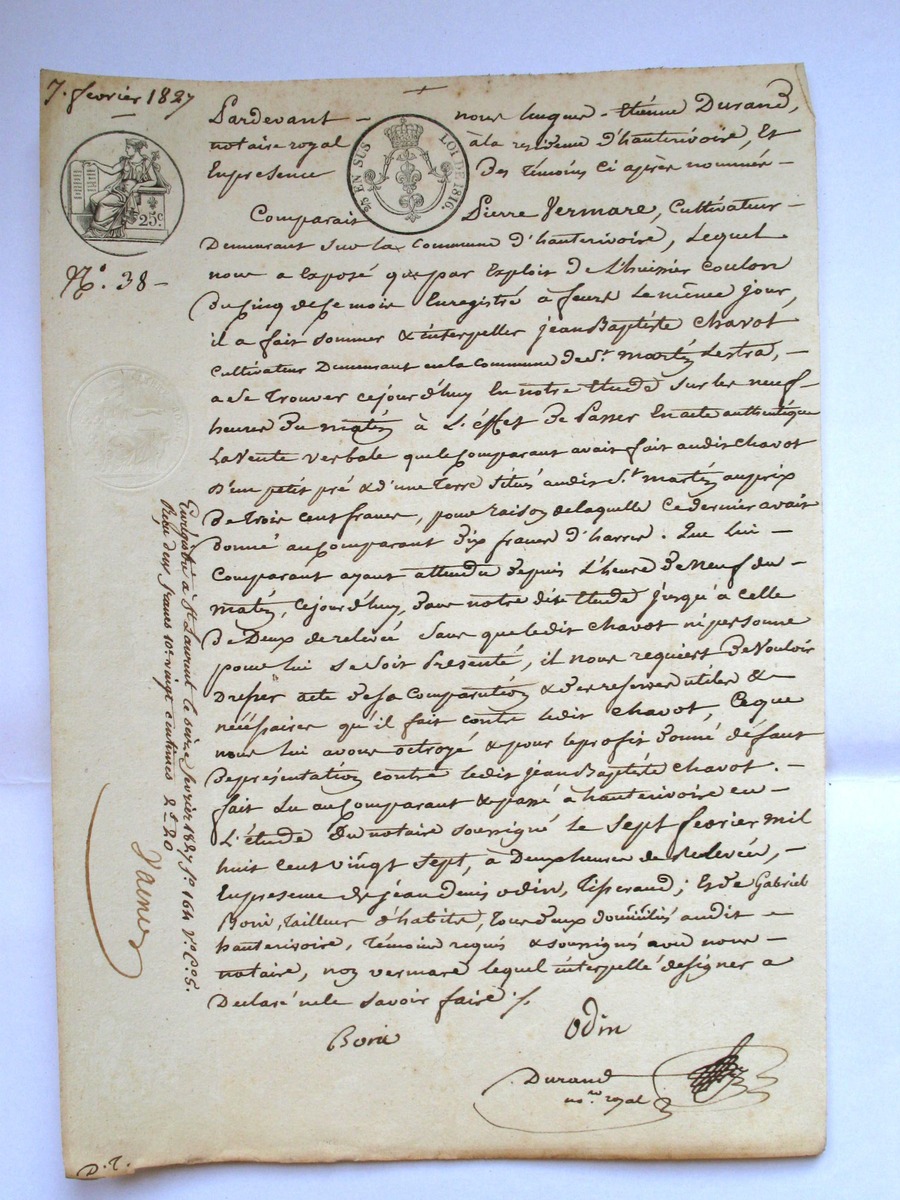 7. fevrier 1827
Pardevant - nous hugues - étiénne Durand,
notaire royal à la residence d'hauterivoire, Et
En presence Des Témoins ci après nommés -
¾ EN SUS LOI DE 1816.
25c.
N.° 38 -
Comparait Pierre Vermare, Cultivateur -
Demeurant sur la Commune d'hauterivoire, Lequel
nous a Exposé que par Exploit de L'huissier coulon
du Cinq de ce mois Enregistré à feurs Le même jour,
il a fait sommer & interpeller jean Baptiste Chavot
Cultivateur Demeurant en la Commune de St. martin Lestra, -
a de se Trouver cejourd'huy En notre étude sur les neuf -
heures du matin à L'éffet de Passer En acte authentique
La Vente verbale que le Comparant avait fait audit Chavot
D'un petit pré & d'une Terre situés audit St. martin au prix
de Trois cent francs, pour raison de laquelle ce dernier avait
donné au Comparant Dix francs d'harres. Que lui -
Comparant ayant attendu depuis L'heure de neuf du -
matin, cejourd'huy, dans notre dite étude jusqu'à celle
de Deux de relevée sans que ledit Chavot ni personne
pour lui se soit Presenté, il nous requiert de Vouloir
Dresser acte de sa Comparution & des reserves utiles &
néçéssaires qu'il fait contre ledit Chavot, Ce que
nous lui avons octroyé & pour le profit donné défaut
De présentation contre ledit jean Baptiste Chavot. -
fait Lu au Comparant & passé à hauterivoire en -
L'étude du notaire soussigné le sept fevrier mil
huit cent vingt sept, à Deux heures de Relevée, -
En presence de jean denis odin, Tisserand; Et de Gabriel
Borie, Tailleur d'habits, Tous deux domiciliés audit -
hauterivoire, Témoins requis & soussignés avec nous -
notaire, non vermare lequel interpellé de signer a
Declaré ne le savoir faire ./.
Borie
odin
Durand
no.re royal
Enrégistré à St. Laurent le seize fevrier 1827 f.o 164 V.o C.e 5.
Reçu deux francs 10e vingt centimes 2f 20
P.T.